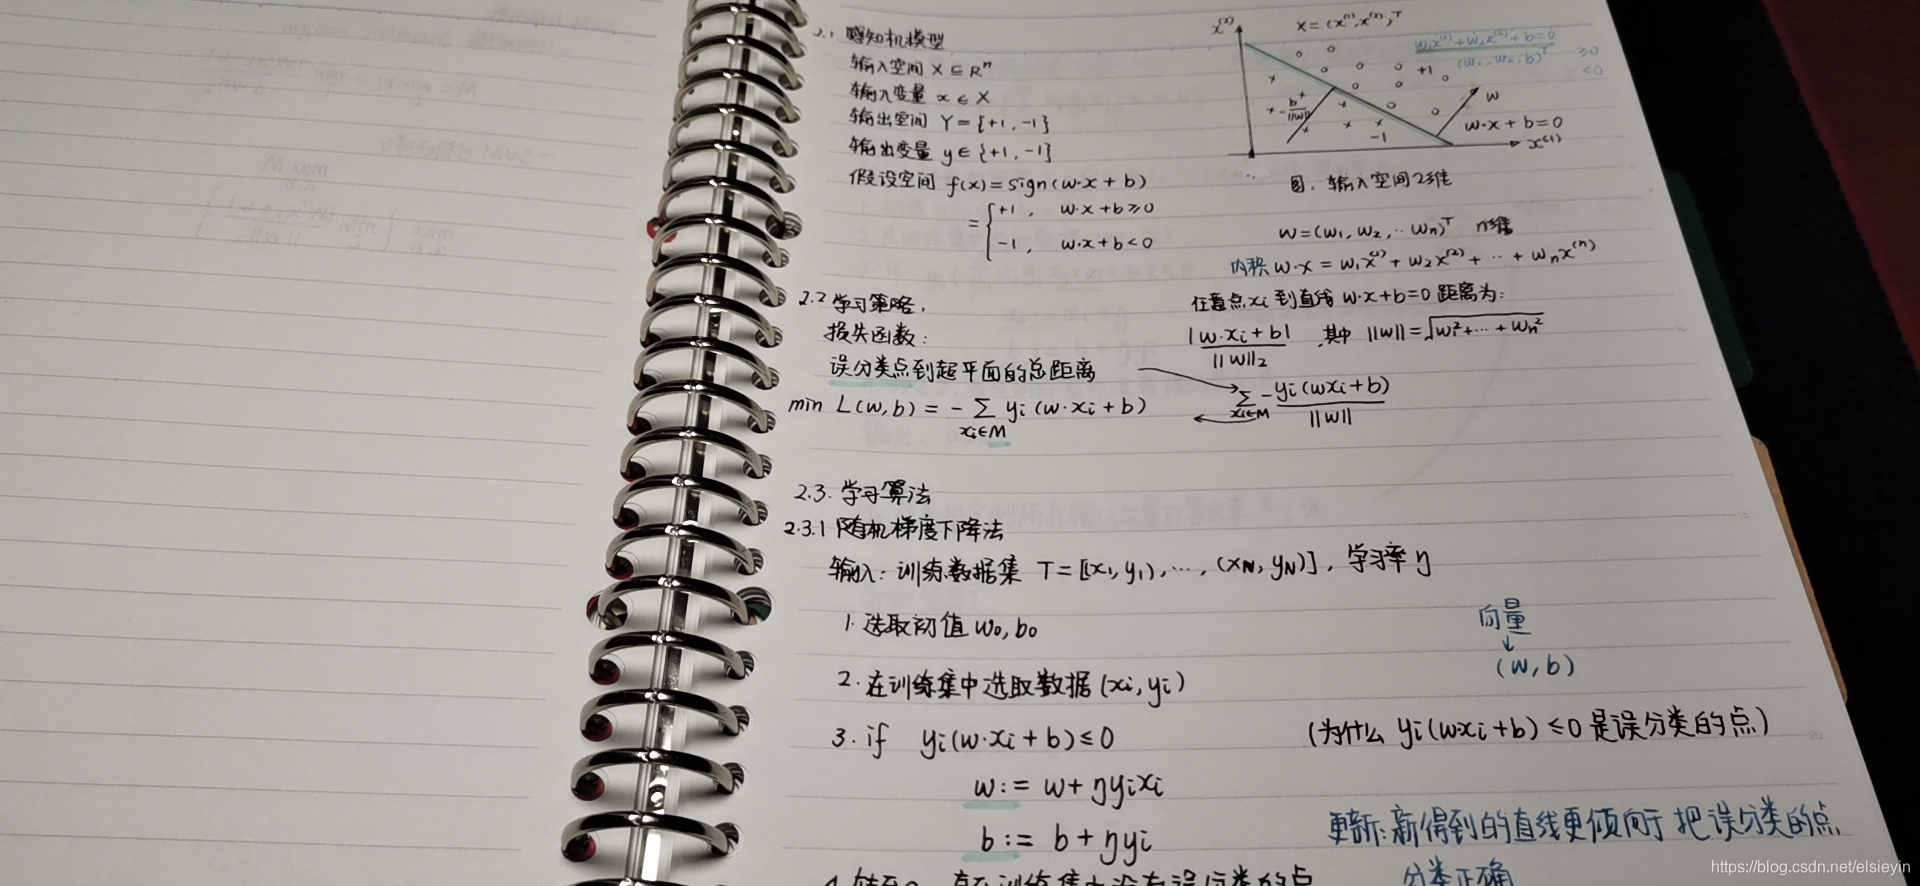 2.1 感知机模型
输入空间 X ⊆ Rⁿ
输入变量 x ∈ X
输出空间 Y = {+1, -1}
输出变量 y ∈ {+1, -1}
假设空间 f(x) = sign(w·x + b)
= { +1, w·x + b ≥ 0
-1, w·x + b < 0
x⁽²⁾
x = (x⁽¹⁾, x⁽²⁾)ᵀ
w₁x⁽¹⁾ + w₂x⁽²⁾ + b = 0
(w₁, w₂, b)ᵀ
≥0
<0
+1
-b/||w||
w
w·x + b = 0
-1
x⁽¹⁾
图. 输入空间2维
w = (w₁, w₂, ·· wₙ)ᵀ n维
内积 w·x = w₁x⁽¹⁾ + w₂x⁽²⁾ + ··· + wₙx⁽ⁿ⁾
2.2 学习策略.
损失函数:
误分类点到超平面的总距离
min L(w, b) = - Σ yᵢ (w·xᵢ + b)
xᵢ∈M
任意点xᵢ 到直线 w·x+b=0 距离为:
|w·xᵢ + b| / ||w||₂ , 其中 ||w|| = √w²+···+wₙ²
Σ xᵢ∈M -yᵢ(wxᵢ+b) / ||w||
2.3. 学习算法
2.3.1 随机梯度下降法
输入: 训练数据集 T = [x₁, y₁), ···, (x_N, y_N)], 学习率 η
1. 选取初值 w₀, b₀
2. 在训练集中选取数据 (xᵢ, yᵢ)
向量
↓
(w, b)
3. if yᵢ(w·xᵢ + b) ≤ 0
(为什么 yᵢ(w·xᵢ + b) ≤ 0 是误分类的点)
w := w + ηyᵢxᵢ
b := b + ηyᵢ
更新: 新得到的直线更倾向于把误分类的点
分类正确
https://blog.csdn.net/elsieyin